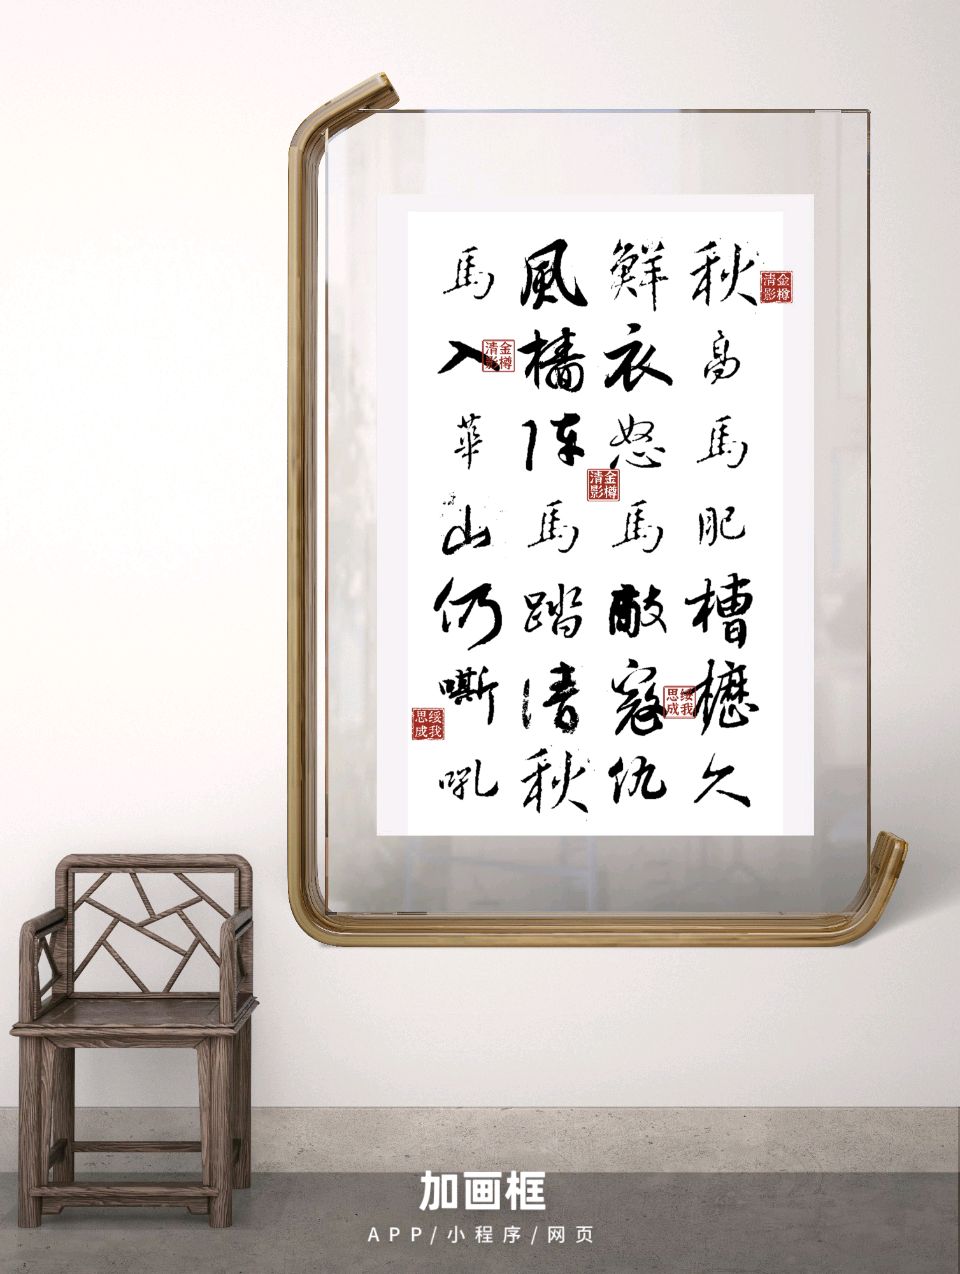 秋高馬肥槽櫪久
鮮衣怒馬敵寇仇
風檣陣馬踏清秋
馬入華山仍嘶吼
金樽清影
金樽清影
金樽清影
绥我思成
绥我思成
加画框
APP/小程序/网页